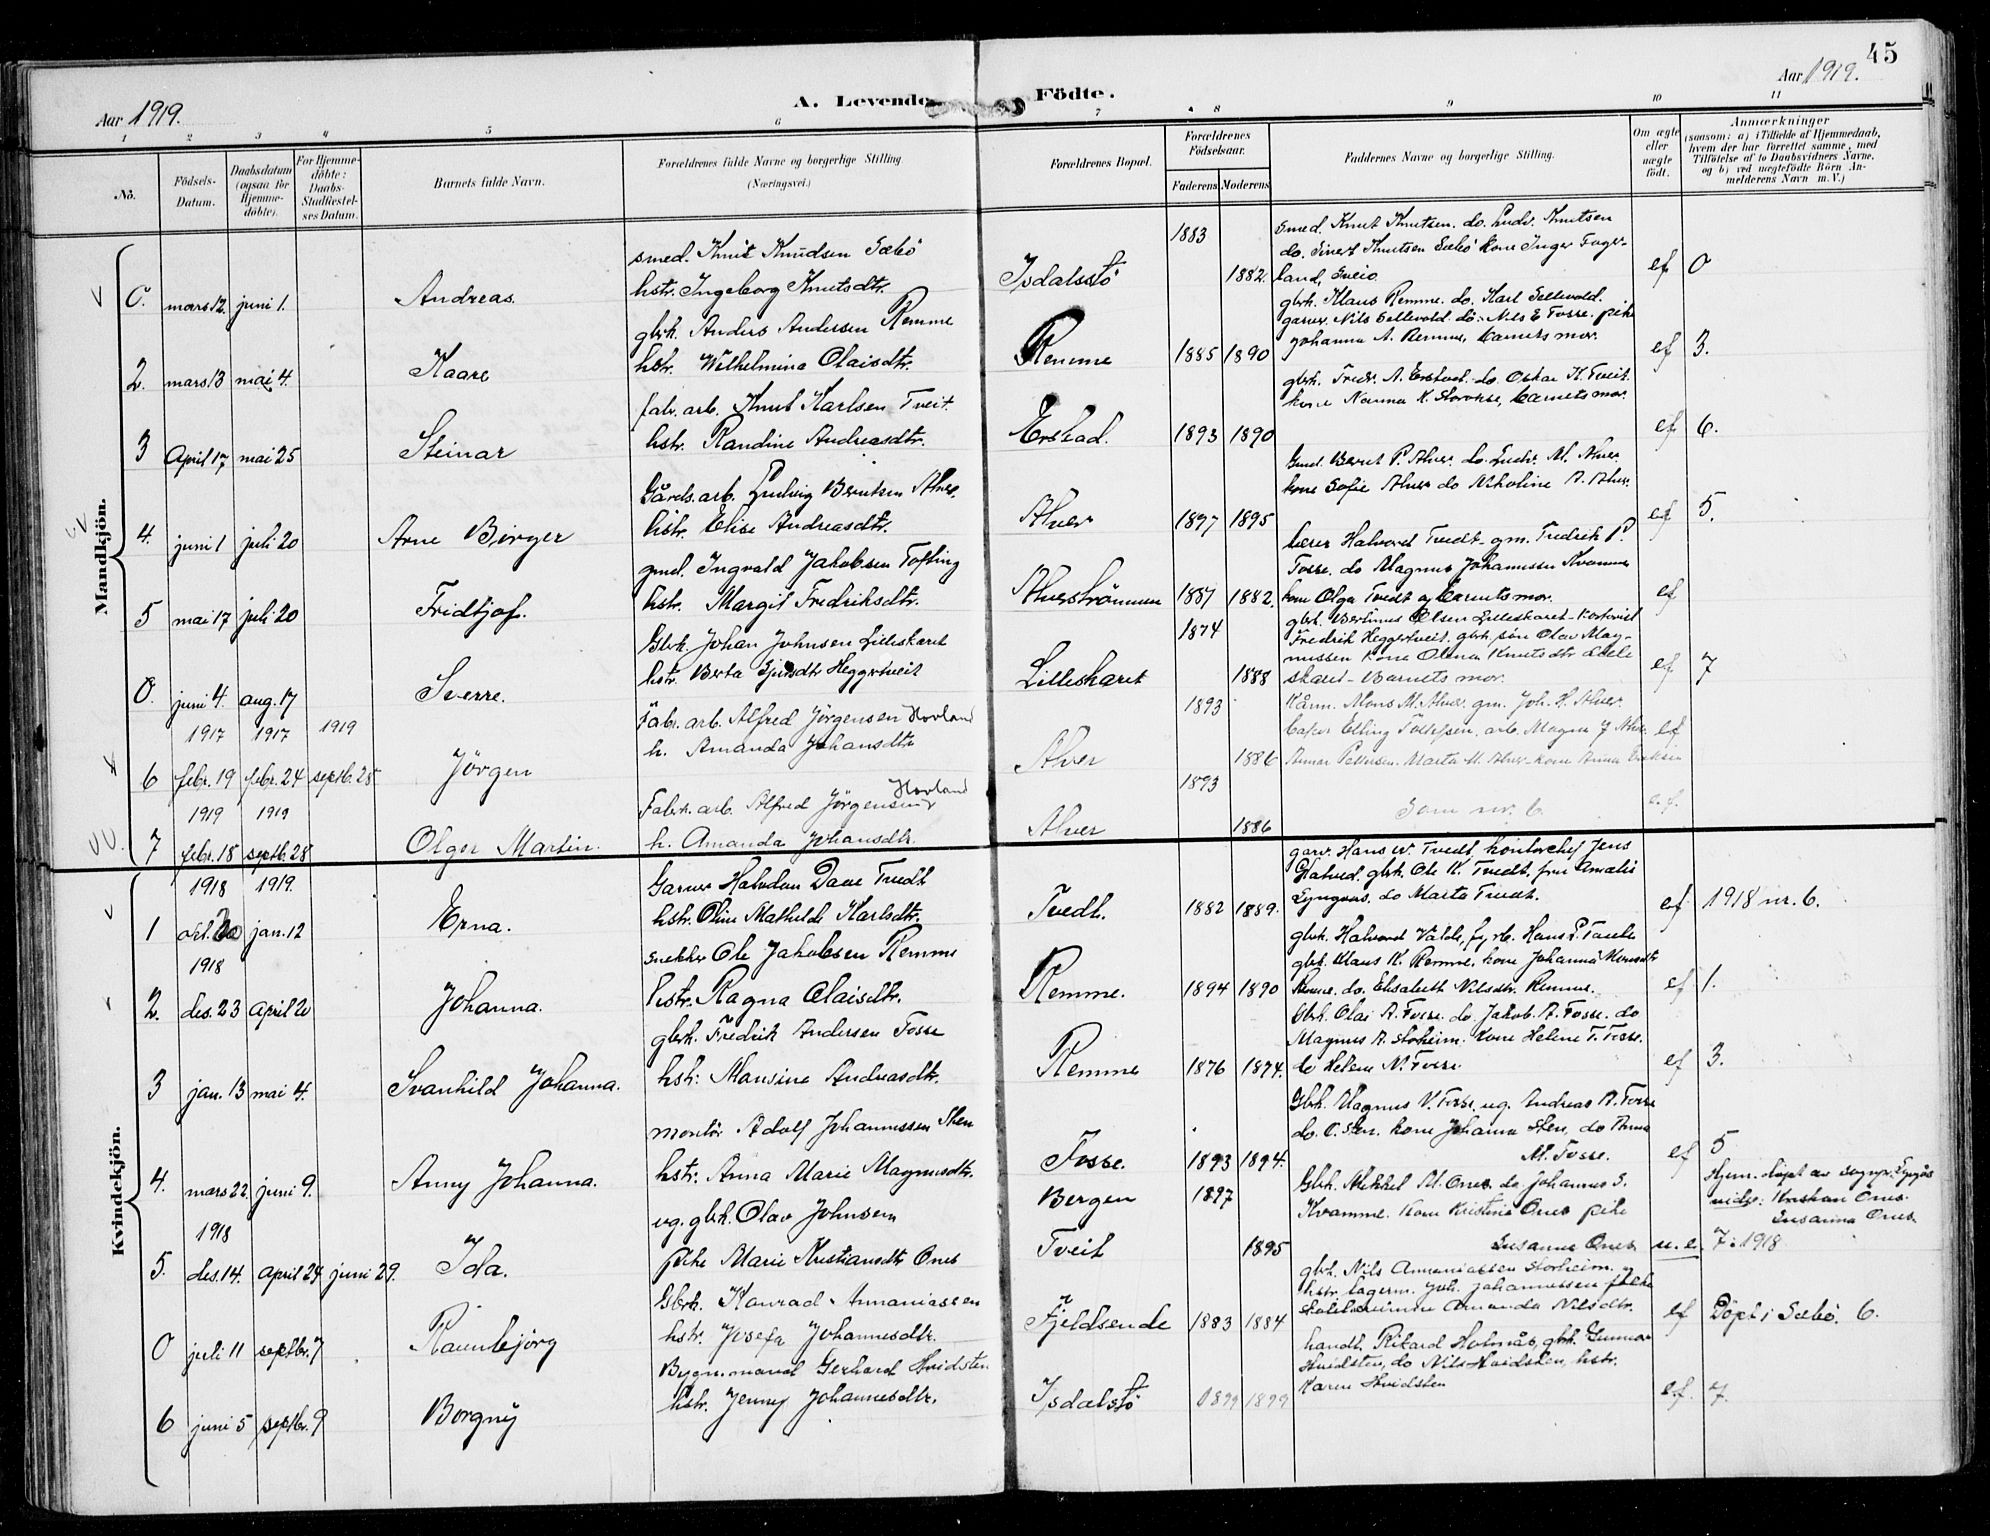 45
Aar 1919.
A. Levende Födte.
Aar 1919.
1 2 3 4 5 6 7 8 9 10 11
No.
Födsels-Datum.
Daabsdatum (ogsaa for Hjemme-döbte).
For Hjemme-döbte: Daabs-Stadfæstel-ses Datum.
Barnets fulde Navn.
Forældrenes fulde Navne og borgerlige Stilling (Næringsvei.)
Forældrenes Bopæl.
Forældrenes Födselsaar.
Faderens Moderens
Faddernes Navne og borgerlige Stilling.
Om ægte eller uægte født.
Anmærkninger
(saasom: a) i Tilfælde af Hjemmedaab, hvem der har forrettet samme, med Tilföielse af to Daabsvidners Navne, og b) ved uægtefödte Börn An-melderens Navn m. V.)
Mandkjön.
0. mars 12. juni 1. Andreas.
smed. Knut Knudsen Sæbö
hstr. Ingeborg Knutsdtr.
Isdalsstö 1883 1882.
smed. Knut Knutsen. do. Ludv. Knutsen
do. Sivert Knutsen Sæbö kone Inger Fager-
land, Sveio
ef 0
2. mars 13 mai 4. Kaare
gbrk. Anders Andersen Remme
hstr. Wilhelmina Olaisdtr.
Remme 1885 1890
gbrk. Klaus Remme. do. Karl Sellevold.
garver. Nils Sellevold. do. Nils E Fosse. pike
Johanna A. Remme, barnets mor.
ef 3.
3 April 17 mai 25 Steinar
fabr. arb. Knut Karlsen Tveit.
hstr. Randine Andreasdtr.
Erstad. 1893 1890
gbrk. Fredr. A. Erstad. do. Oskar K. Tveit.
kone Nanna K. barnets mor.
ef 6.
4. juni 1 juli 20 Arne Birger
Gårds. arb. Ludvig Berntsen Alver.
hstr. Elise Andreasdtr.
Alver 1897 1895
Gmd. Bernt P. Alver. do. Ludv. M. Alver.
kone Sofie Alver do Nikoline A. Alver.
ef 5.
5 mai 17 juli 20 Fridtjof.
gmd. Ingvald Jakobsen Tofting
hstr. Margit Fredriksdtr.
Alverströmmen 1887 1882.
lærer Halvord Tvedt. gm. Fredrik P.
Fosse. do Magnus Johannessen Kvamme
kone Olga Tvedt og barnets mor.
ef
0. juni 4. aug. 17 Sverre.
Gbrk. Johan Johnsen Lilleskaret
hstr. Berta Heggertveit
Lilleskaret 1874 1888
gbr. Bertinus Olsen Lilleskaret
Fredrik Heggertveit. gbrk. søn Olav Mag-
nussen kone Olena Knutsdtr Lille
skaret - Barnets mor.
ef 7
1917 1917 1919
6 febr. 19 febr. 24 septb. 28 Jörgen
Fabr. arb. Alfred Jörgensen Hovland
h. Amanda Johansdtr
Alver 1893 1886
Mons M. Alver. gm. Joh. H. Alver.
arb. Magne J Alver.
Marta M. Alver - kone Anna
ef
1919 1919
7 febr. 18 septb. 28 Olger Martin.
Fabrk. arb. Alfred Jörgensen Hovland
h. Amanda Johansdtr.
Alver 1893 1886
Som nr. 6.
e.f.
Kvindekjön.
1918 1919.
1 okt. 20 jan. 12 Erna.
Garver Halvdan Dave Tvedt
hstr. Oline Mathilde Karlsdtr.
Tvedt. 1882 1889.
garv. Hans W. Tvedt, kontorchef Jens
gbrk. Ole K. Tvedt. fru Amalie
Lyngnes. do Marta Tvedt.
ef 1918 nr. 6.
1918
2. des. 23 April 20 Johanna.
snekker Ole Jakobsen Remme
hstr. Ragna Olaisdtr.
Remme. 1894 1890
gbrk. Halvord Valde, fyrb. Hans P.
gbr. Klaus K. Remme. kone Johanna Monsdtr
Remme. do. Elisabeth Nilsdtr. Remme.
ef 1.
3 jan. 13 mai 4. Svanhild Johanna.
gbrk. Fredrik Andersen Fosse
hstr. Mansine Andreasdtr.
Remme 1876 1874.
Gbrk. Olai A. Fosse. do. Jakob. A. Fosse. do
Magnus A. Storheim. kone Helene T. Fosse.
do Helene N. Fosse.
ef 3.
4. mars 22. juni 9. Anny Johanna.
montör Adolf Johannessen Sten
hstr. Anna Marie Magnusdtr.
Fosse. 1893 1894.
Gbrk. Magnus V. Fosse, ug. Andreas A. Fosse
do. O. Sten. kone Johanna Sten, do Anna
M. Fosse.
ef 5
1918
5. des. 14. April 24 juni 29. Ida.
ug. gbrk. Olav Johnsen
pike Marie Kristiansdtr Ones
Bergen 1897
Tveit 1895
Gbrk. Mikkel M. Ones do Johannes S.
Kvamme. kone Kristine Ones pike
Susanne Ones.
u. e.
Hjem. döpt av sogpr.
vidn: Kristian Ones.
Susanna Ones.
7 : 1918
0 juli 11 septbr. 7 Raunbjörg
Gbrk. Konrad Annaniassen
hstr. Josefa Johannesdtr.
Fjeldsende 1883 1884
gbrk. Nils Annaniassen Storheim. og
hstr. lagerm. Joh. Johannessen
Amanda Nilsdtr.
ef Döpt i Sæbö. 6.
6 juni 5 septbr. 9 Borgny
Bygn.mand Gerhard Hvidsten
hstr. Jenny Johannesdtr.
Isdalstö 1899 1899
handl. Rikard Holmås, gbrk. Gunnar
Hvidsten, do Nils Hvidsten, hstr.
Karen Hvidsten
ef. 7.